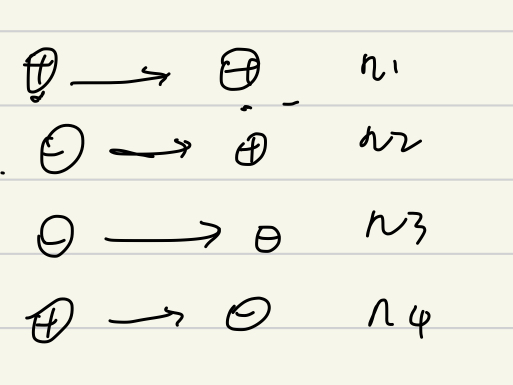 ⊕ → ⊕ n1
⊖ → ⊕ n2
⊖ → ⊖ n3
⊕ → ⊖ n4